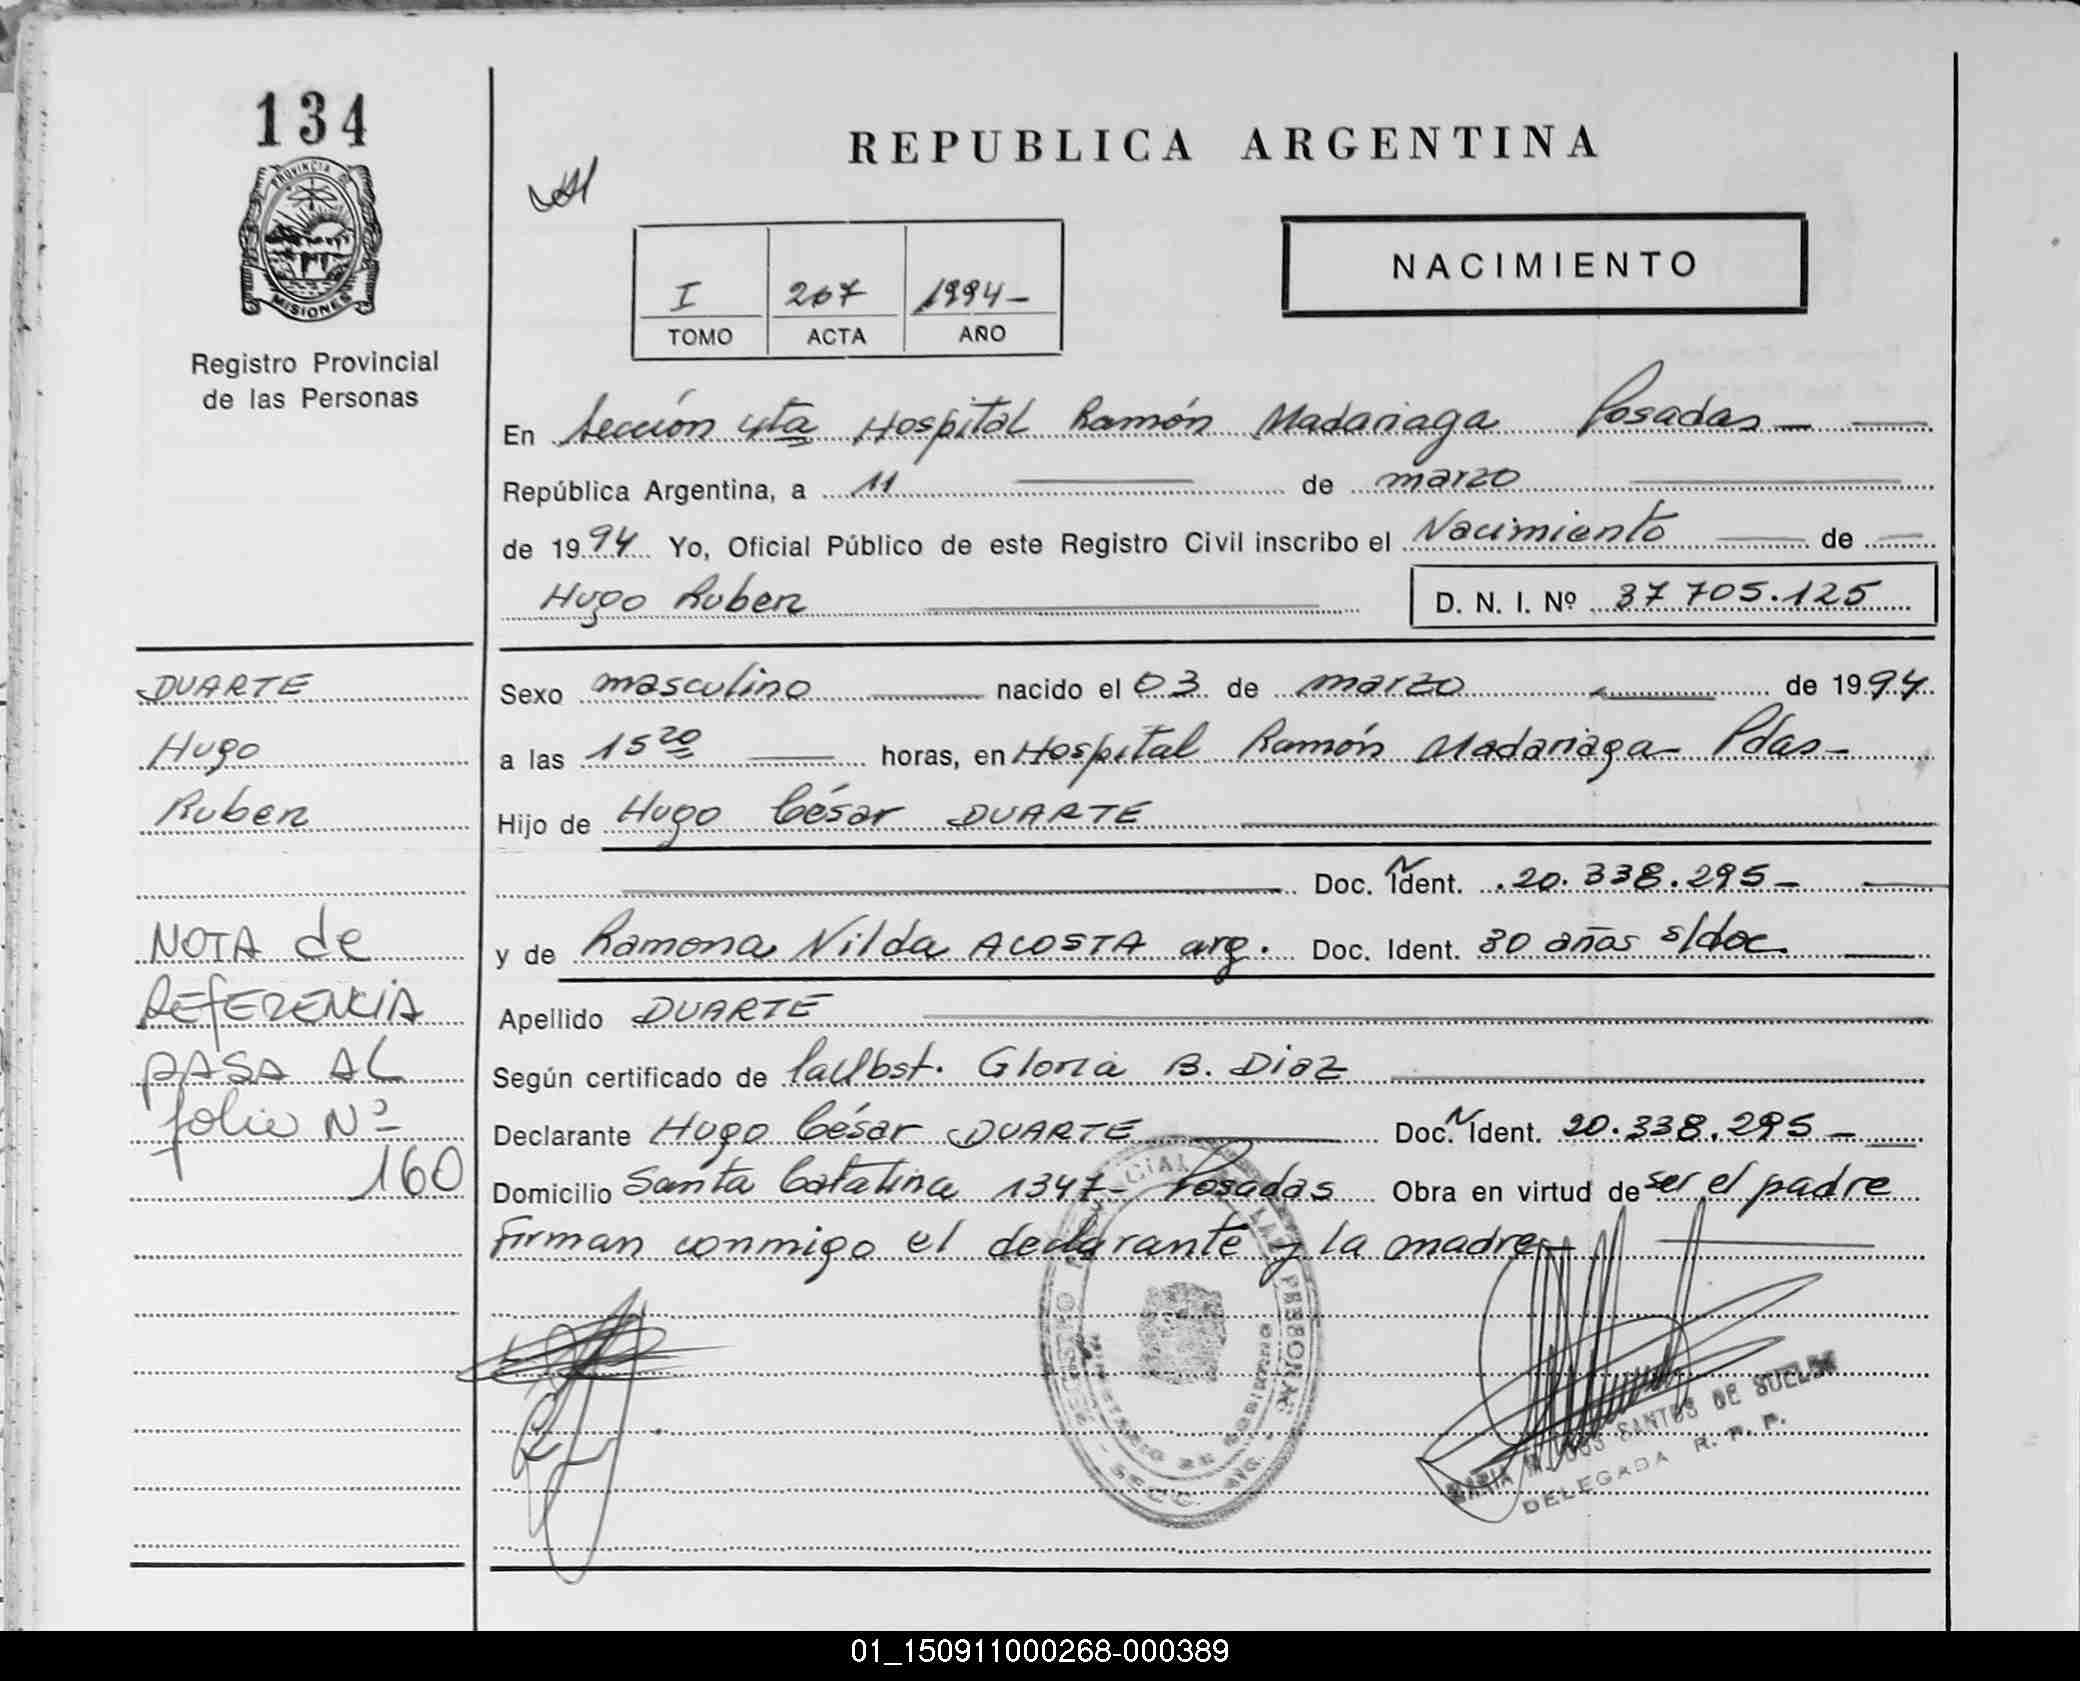 134
PROVINCIA DE
MISIONES
Registro Provincial
de las Personas
REPUBLICA ARGENTINA
NACIMIENTO
I 267 1994-
TOMO ACTA AÑO
En Sección 4ta Hospital Ramón Madariaga Posadas -
República Argentina, a 11 de marzo
de 1994 Yo, Oficial Público de este Registro Civil inscribo el Nacimiento de
Hugo Ruben D. N. I. Nº 37 705.125
DUARTE
Hugo
Ruben
NOTA de
REFERENCIA
PASA AL
folio Nº
160
Sexo masculino nacido el 03 de marzo de 1994
a las 15 20 horas, en Hospital Ramón Madariaga - Pdas -
Hijo de Hugo César DUARTE
Doc. N Ident. 20.338.295 -
y de Ramona Nilda ACOSTA arg. Doc. Ident. 30 años s/doc.
Apellido DUARTE
Según certificado de Gloria B. Diaz
Declarante Hugo César DUARTE Doc. N Ident. 20.338.295 -
Domicilio Santa Catalina 1347 - Posadas Obra en virtud de ser el padre
Firman conmigo el declarante y la madre -
SANTOS DE
DELEGADA R. P. P.
01_150911000268-000389